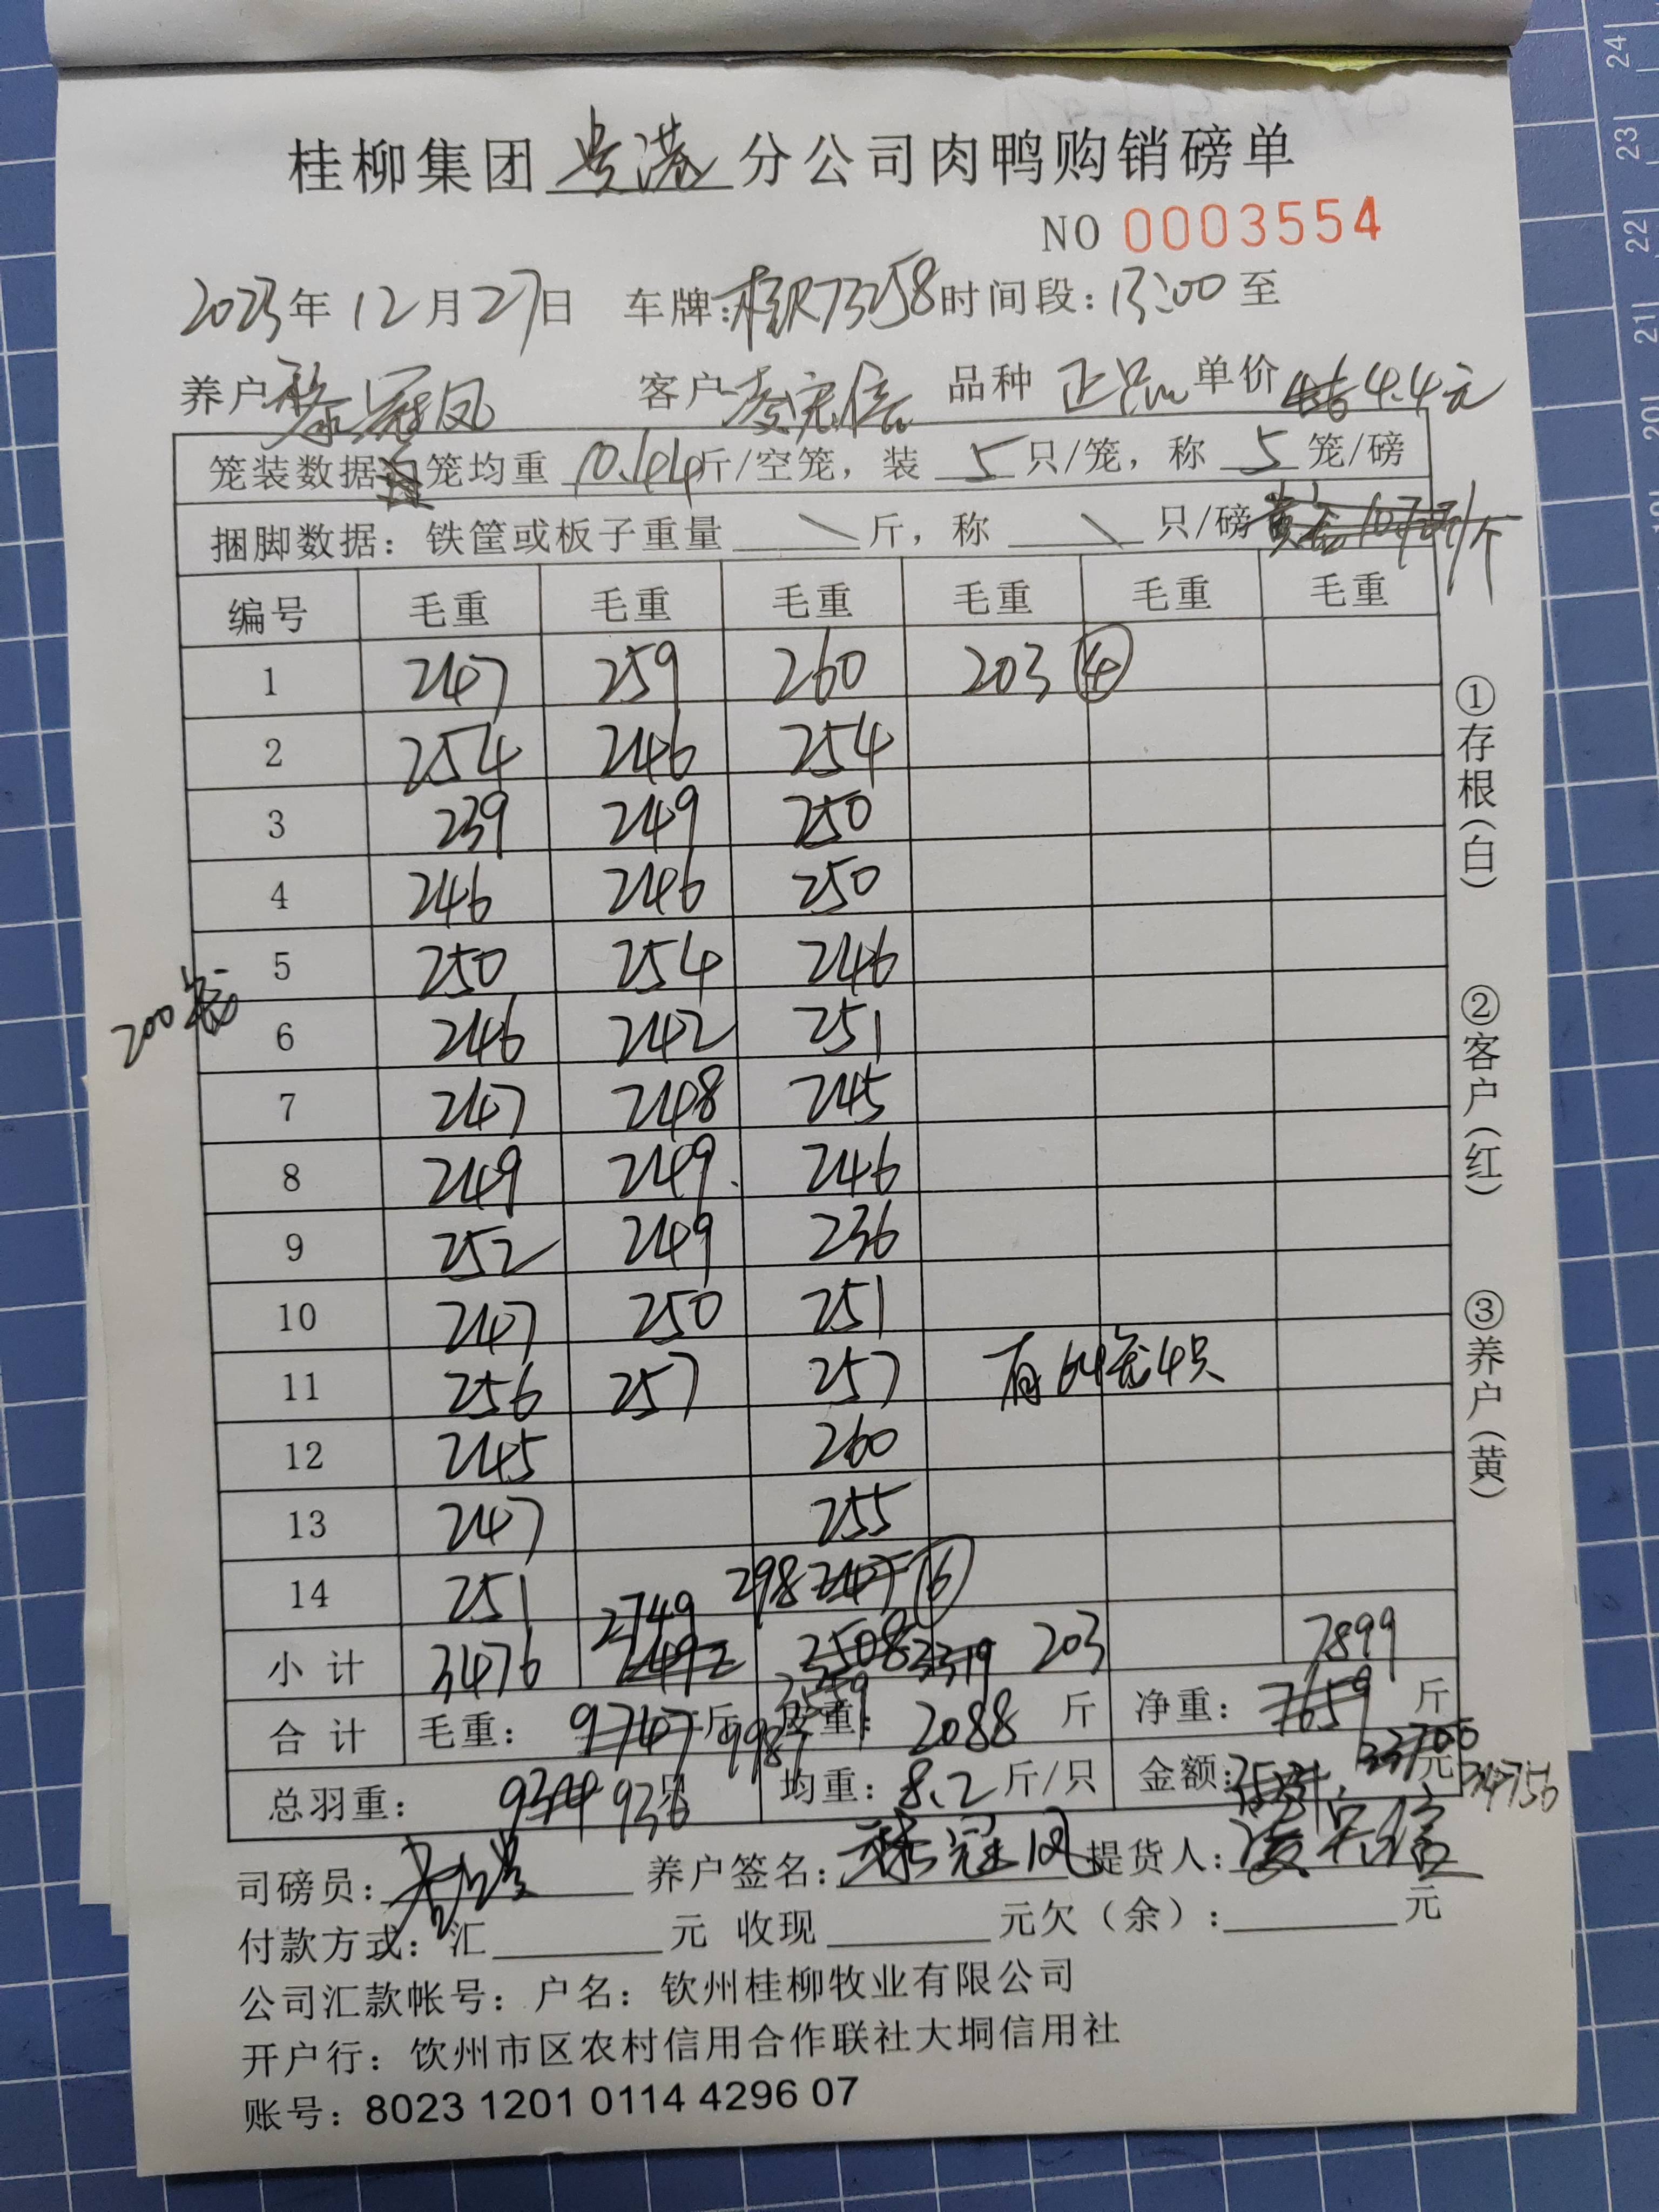 桂柳集团贵港分公司肉鸭购销磅单
NO 0003554
2023年12月27日 车牌:桂R73258时间段:13:00至
养户黎冠凤 客户凌宏信 品种 正品 单价 4.4元
笼装数据 笼均重 10.44斤/空笼，装 5 只/笼，称 5 笼/磅
捆脚数据：铁筐或板子重量 \ 斤，称 \ 只/磅
编号 毛重 毛重 毛重 毛重 毛重 毛重
1 247 259 260 203 ④
2 254 246 254
3 239 249 250
4 246 246 250
5 250 254 246
200笼
6 246 242 251
7 247 248 245
8 249 249. 246
9 252 249 236
10 247 250 251
11 256 257 257 有64笼4只
12 245 260
13 247 255
14 251 298 247 ⑥
小计 3476 2749 2492 2508 3319 203 7899
3559
合计 毛重：9747斤 9987 皮重：2088 斤 净重：7659 斤
总羽重： 934 936 只 均重：8.2 斤/只 金额： 33700 元 34756
司磅员： 养户签名：黎冠凤 提货人：凌宏信
付款方式：汇 元 收现 元欠（余）： 元
公司汇款帐号：户名：钦州桂柳牧业有限公司
开户行：饮州市区农村信用合作联社大垌信用社
账号：8023 1201 0114 4296 07
①存根（白）
②客户（红）
③养户（黄）
24
23
22
21
20
19